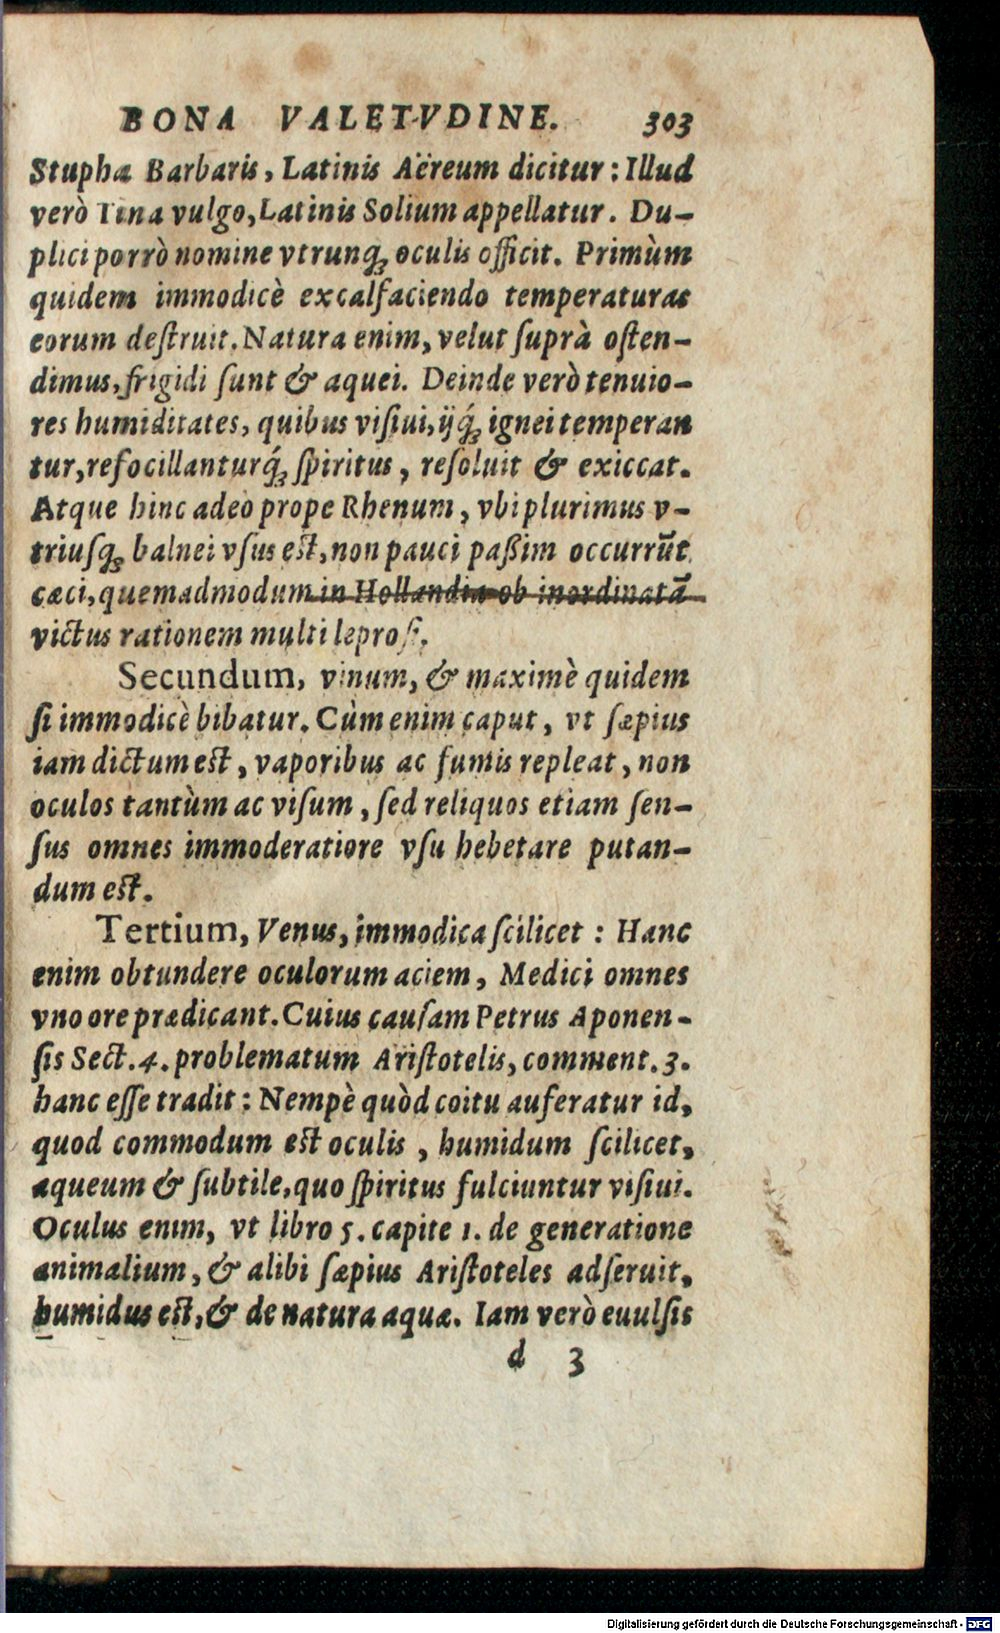 BONA VALETVDINE. 303
Stupha Barbaris, Latinis Aëreum dicitur: Illud
verò Tina vulgo, Latinis Solium appellatur. Du-
plici porrò nomine vtrunq́ꝫ oculis officit. Primùm
quidem immodicè excalfaciendo temperaturas
eorum deſtruit. Natura enim, velut ſuprà oſten-
dimus, frigidi ſunt & aquei. Deinde verò tenuio-
res humiditates, quibus viſiui, ijq́ꝫ ignei temperan
tur, refocillanturq́ꝫ ſpiritus, reſoluit & exiccat.
Atque hinc adeo prope Rhenum, vbi plurimus v-
triuſqꝫ balnei vſus eſt, non pauci paßim occurrũt
cæci, quemadmodum in Hollandia ob inordinatã
victus rationem multi leproſi.
Secundum, vinum, & maximè quidem
ſi immodicè bibatur. Cùm enim caput, vt ſæpius
iam dictum eſt, vaporibus ac fumis repleat, non
oculos tantùm ac viſum, ſed reliquos etiam ſen-
ſus omnes immoderatiore vſu hebetare putan-
dum eſt.
Tertium, Venus, immodica ſcilicet: Hanc
enim obtundere oculorum aciem, Medici omnes
vno ore prædicant. Cuius cauſam Petrus Aponen-
ſis Sect. 4. problematum Ariſtotelis, comment. 3.
hanc eſſe tradit: Nempè quòd coitu auferatur id,
quod commodum eſt oculis, humidum ſcilicet,
aqueum & ſubtile, quo ſpiritus fulciuntur viſiui.
Oculus enim, vt libro 5. capite 1. de generatione
animalium, & alibi ſæpius Ariſtoteles adſeruit,
humidus eſt, & de natura aquæ. Iam verò euulſis
d 3
Digitalisierung gefördert durch die Deutsche Forschungsgemeinschaft - DFG